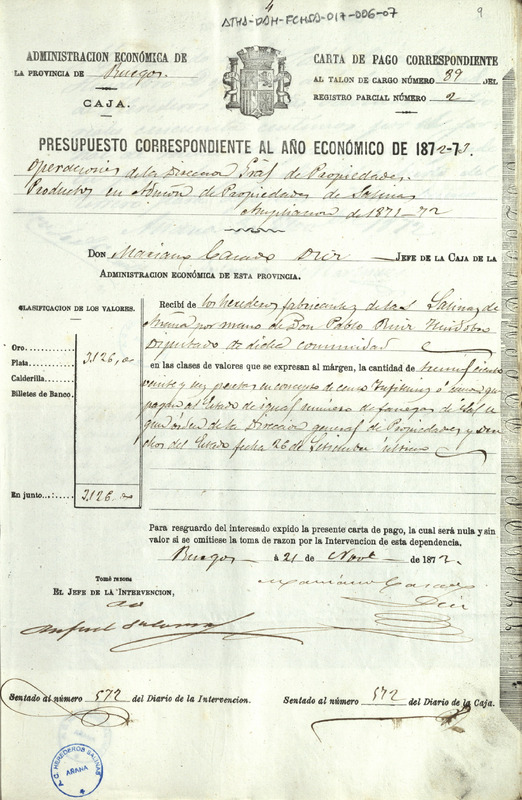 4
ATHA-DAH-FCHSA-017-006-07
9
ADMINISTRACION ECONÓMICA DE
LA PROVINCIA DE Burgos.
CAJA.
CARTA DE PAGO CORRESPONDIENTE
AL TALON DE CARGO NÚMERO 39 DEL
REGISTRO PARCIAL NÚMERO 2
PRESUPUESTO CORRESPONDIENTE AL AÑO ECONÓMICO DE 1872-73.
Operaciones de la Direccion Gral de Propiedades.
Productos en Admon de Propiedades de Salinas
Ampliacion de 1871-72
DON Mariano Casado Dier JEFE DE LA CAJA DE LA
ADMINISTRACION ECONÓMICA DE ESTA PROVINCIA.
CLASIFICACION DE LOS VALORES.
Oro
Plata. 3.126,00
Calderilla
Billetes de Banco.
En junto 3.126,00
Recibí de los herederos fabricantes de las Salinas de
Añana por mano de Don Pablo Ruiz
Diputado de dicha comunidad
en las clases de valores que se expresan al márgen, la cantidad de tres mil ciento
veinte y seis pesetas en concepto de censo ó canon que
pagan al Estado de igual número de fanegas de Sal
orden de la Direccion general de Propiedades y
del Estado fecha 26 de Setiembre último
Para resguardo del interesado expido la presente carta de pago, la cual será nula y sin
valor si se omitiese la toma de razon por la Intervencion de esta dependencia.
Burgos á 21 de Nove de 1872.
Tomé razon
EL JEFE DE LA INTERVENCION,
Mariano Casado
Dier
Sentado al número 572 del Diario de la Intervencion.
Sentado al número 572 del Diario de la Caja.
A.C. HEREDEROS SALINAS
AÑANA